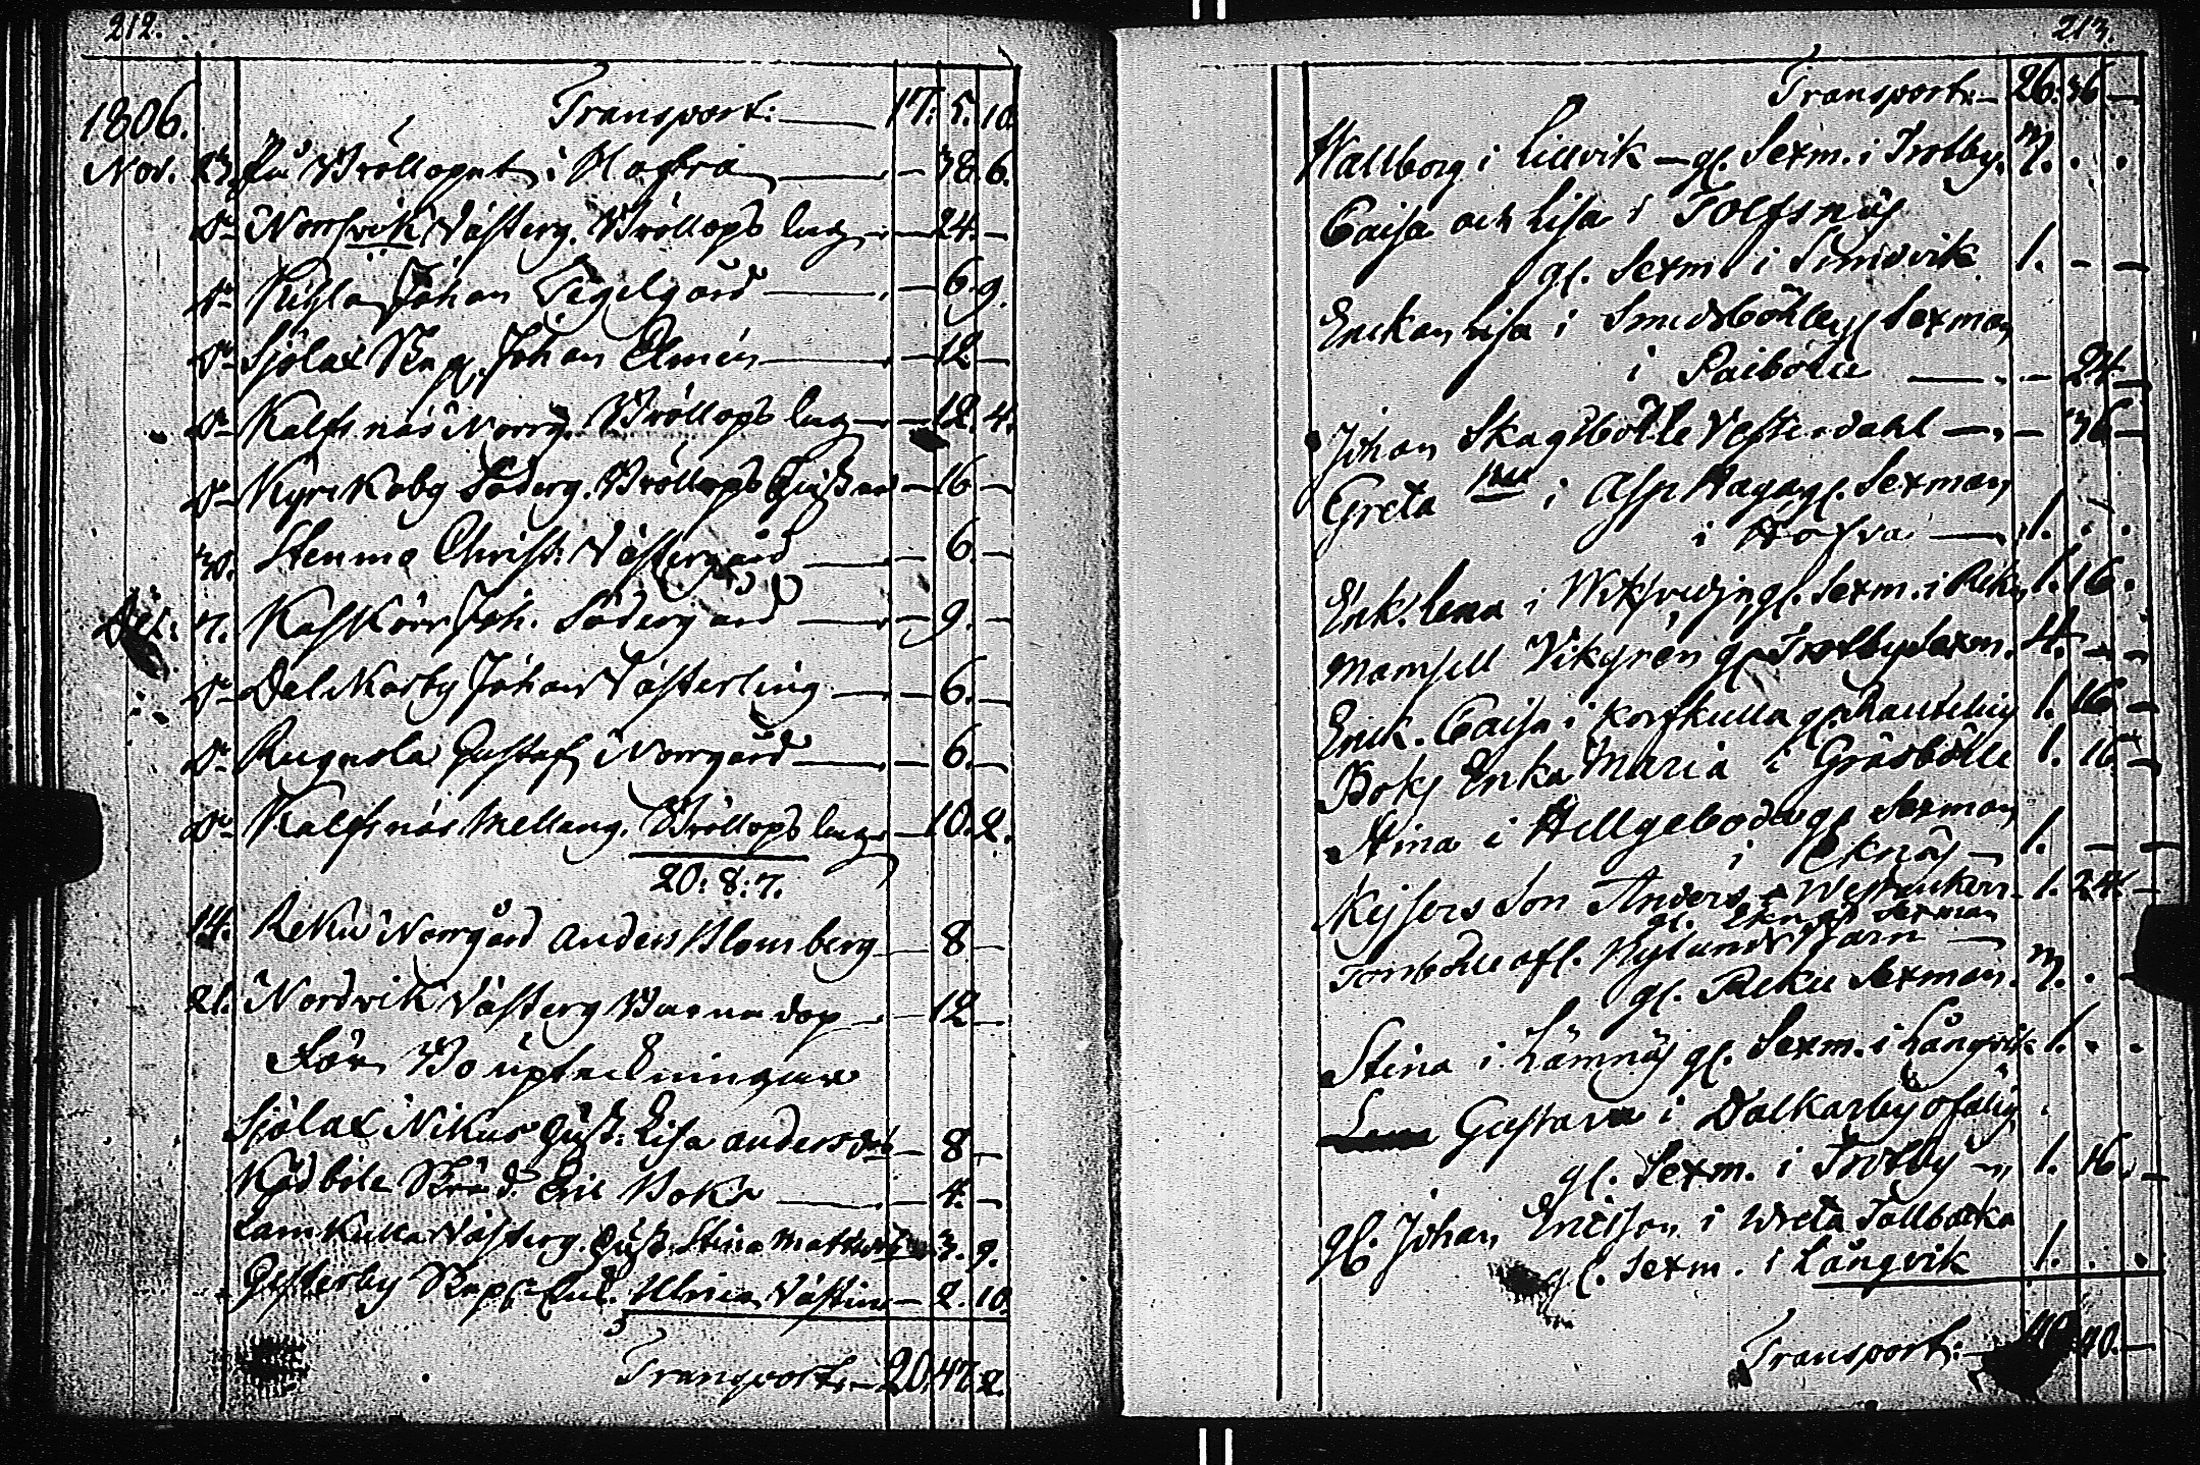 212.
Transport: 17. 5. 10.
1806.
Nov. 23. På Bröllopet i Hafra — 38. 6.
D:o Norrvik Västerg. Bröllops lag — 24. —
D:o Kihla Johan Tegelgård — 6. 9.
D:o Sjölax Johan Elmén — 12 —
D:o Kalfsnäs Norrg. Bröllops lag — 12. 4.
D:o Kyrckoby Söderg. Bröllops — 16 —
30. Stenmo Christ. Västergård — 6. —
Dec: 7. Kasskärr Joh. Södergård — 9. —
D:o Dalkarby Johan Västerling — 6. —
D:o Rugnola Gustaf Norrgård — 6. —
D:o Kalfsnäs Mellang. Bröllops lag — 10. 2.
20: 8: 7.
14. Reku Norrgård Anders Blomberg — 8 —
21. Nordvik Västerg Barndop — 12 —
För Boupteckningar
Sjölax Nikus Gust: Lisa andersd:r — 8 —
Erik Boks — 4. —
Lamkulla Västerg. Stina Matts — 3. 9.
Gesterby Ulrica — 2. 10.
Transport: 20. 47. 2.
213.
Transport: 26. 36 —
Wallborg i Lillvik — gl. Sexm. i Trotby. 3. . .
Caisa och Lisa i Tolfsnäs
gl. Sexm. i Sundvik 1. — —
Enckan Lisa i Smedsböhle gl Sexman
i Paiböle — — 24 —
Johan Skagsbölle Vesterdahl — — 36 —
Greta i Asp Haga gl. Sexman
i Hafva — 1. . .
Enk. Lena i gl. Sexm. i Reku 1. 16.
Mamsell Vikgren gl Trotby Sexm. 4. — —
Enk. Caisa i Korskulla gl 1. 16 —
Boks Enka Maria i Gräsbölle 1. 16 —
Stina i Hellgeboda gl Sexman
i Eknäs — 1. — —
Keisers Son Anders 1. 24. —
gl. Eknäs Sexman
Tombölle afl. Nylunds Barn —
gl. Reku Sexman. 3. . —
Stina i Lämnäs gl. Sexm. i Långvik 1. . .
Gustava i Dalkarby ofälig
gl. Sexm. i Trotby — 1. 16. —
gl. Johan Ericsson i Wreta Tallbacka
gl. Sexm. i Långvik 1. . .
Transport: 40. —